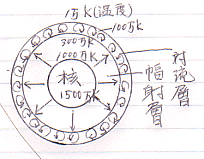 1万K(温度)
100万K
300万K
1000万K
核
1500万K
対流層
幅射層